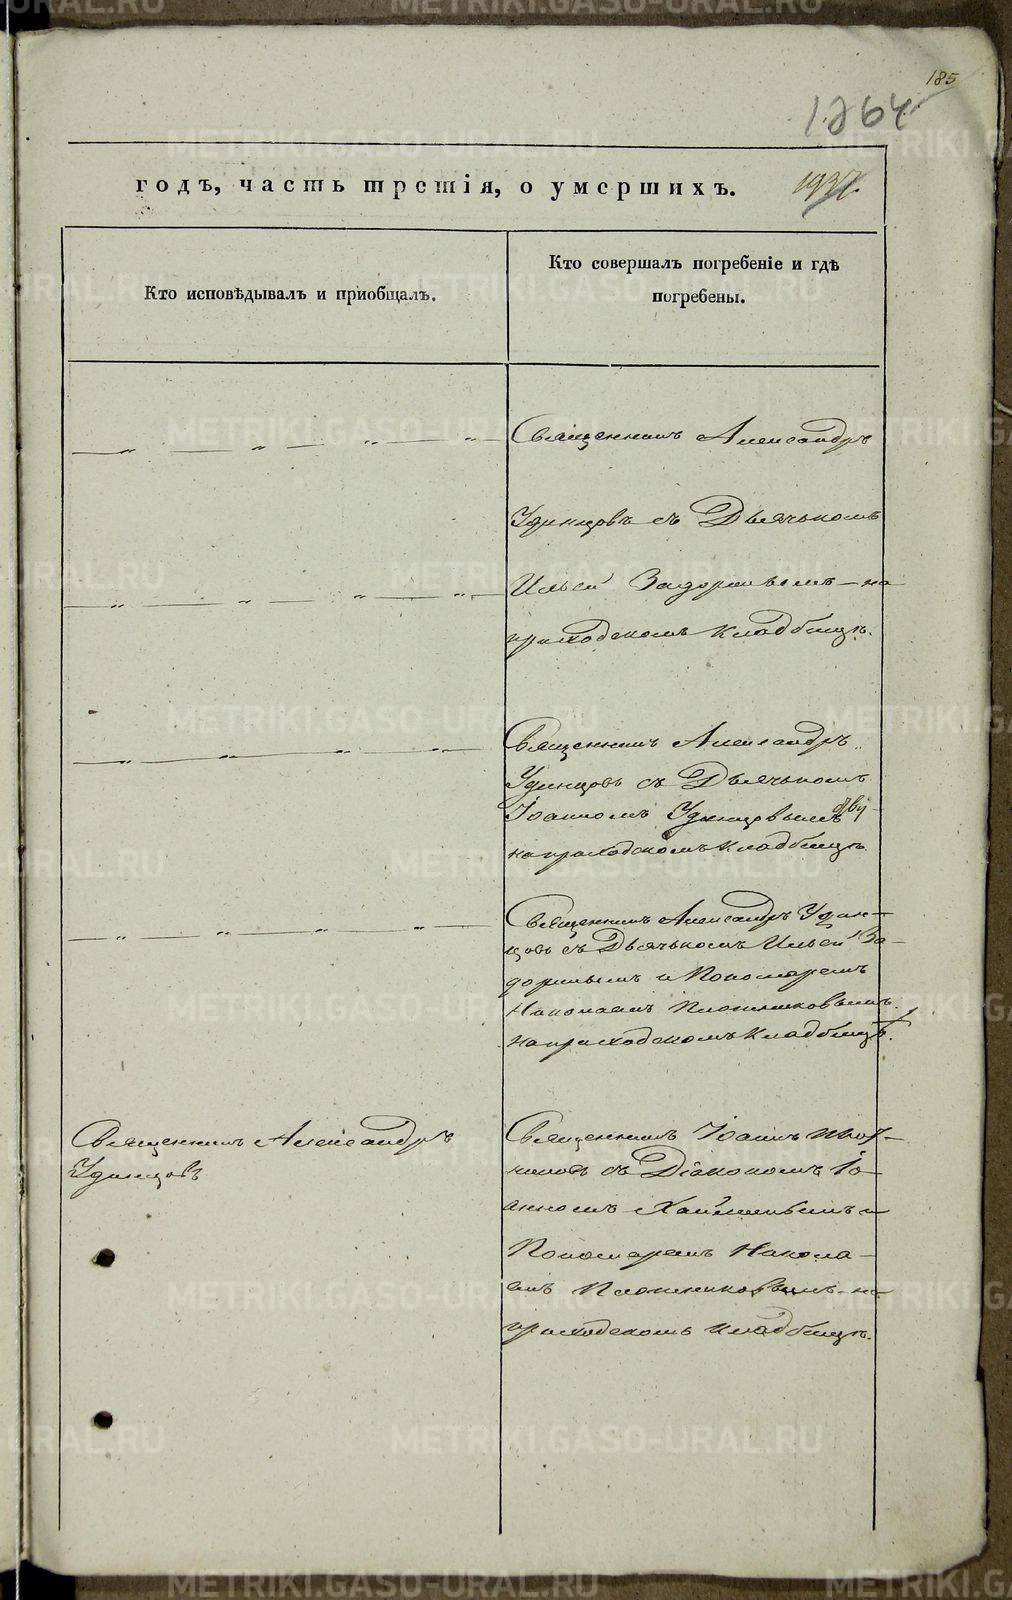 185
1264
годъ, часть третія, о умершихъ.
Кто исповѣдывалъ и приобщалъ.
Кто совершалъ погребеніе и гдѣ
погребены.
Священникъ Александръ
Удинцовъ съ Дьячькомъ
Ильей Задоринымъ на
приходскомъ кладбищѣ.
Священникъ Александръ
Удинцовъ съ Дьячькомъ
Іоанномъ Удинцовымъ
на приходскомъ кладбищѣ.
Священникъ Александръ Удин-
цовъ съ Дьячькомъ Ильей За-
доринымъ и Пономаремъ
Николаемъ Плотниковымъ
на приходскомъ кладбищѣ.
Священникъ Александръ
Удинцовъ
Священникъ Іоаннъ
съ Діакономъ Іо-
анномъ и
Пономаремъ Никола-
емъ Плотниковымъ на
приходскомъ кладбищѣ.
METRIKI.GASO-URAL.RU